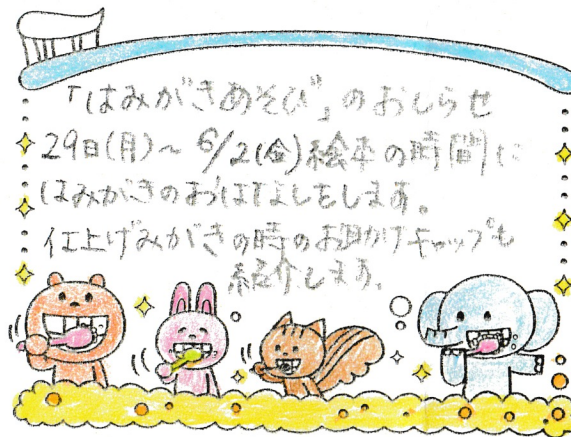 「はみがきあそび」のおしらせ
29日(月)～6/2(金)絵本の時間に
はみがきのおはなしをします。
仕上げみがきの時のお助けキャップも
紹介します。